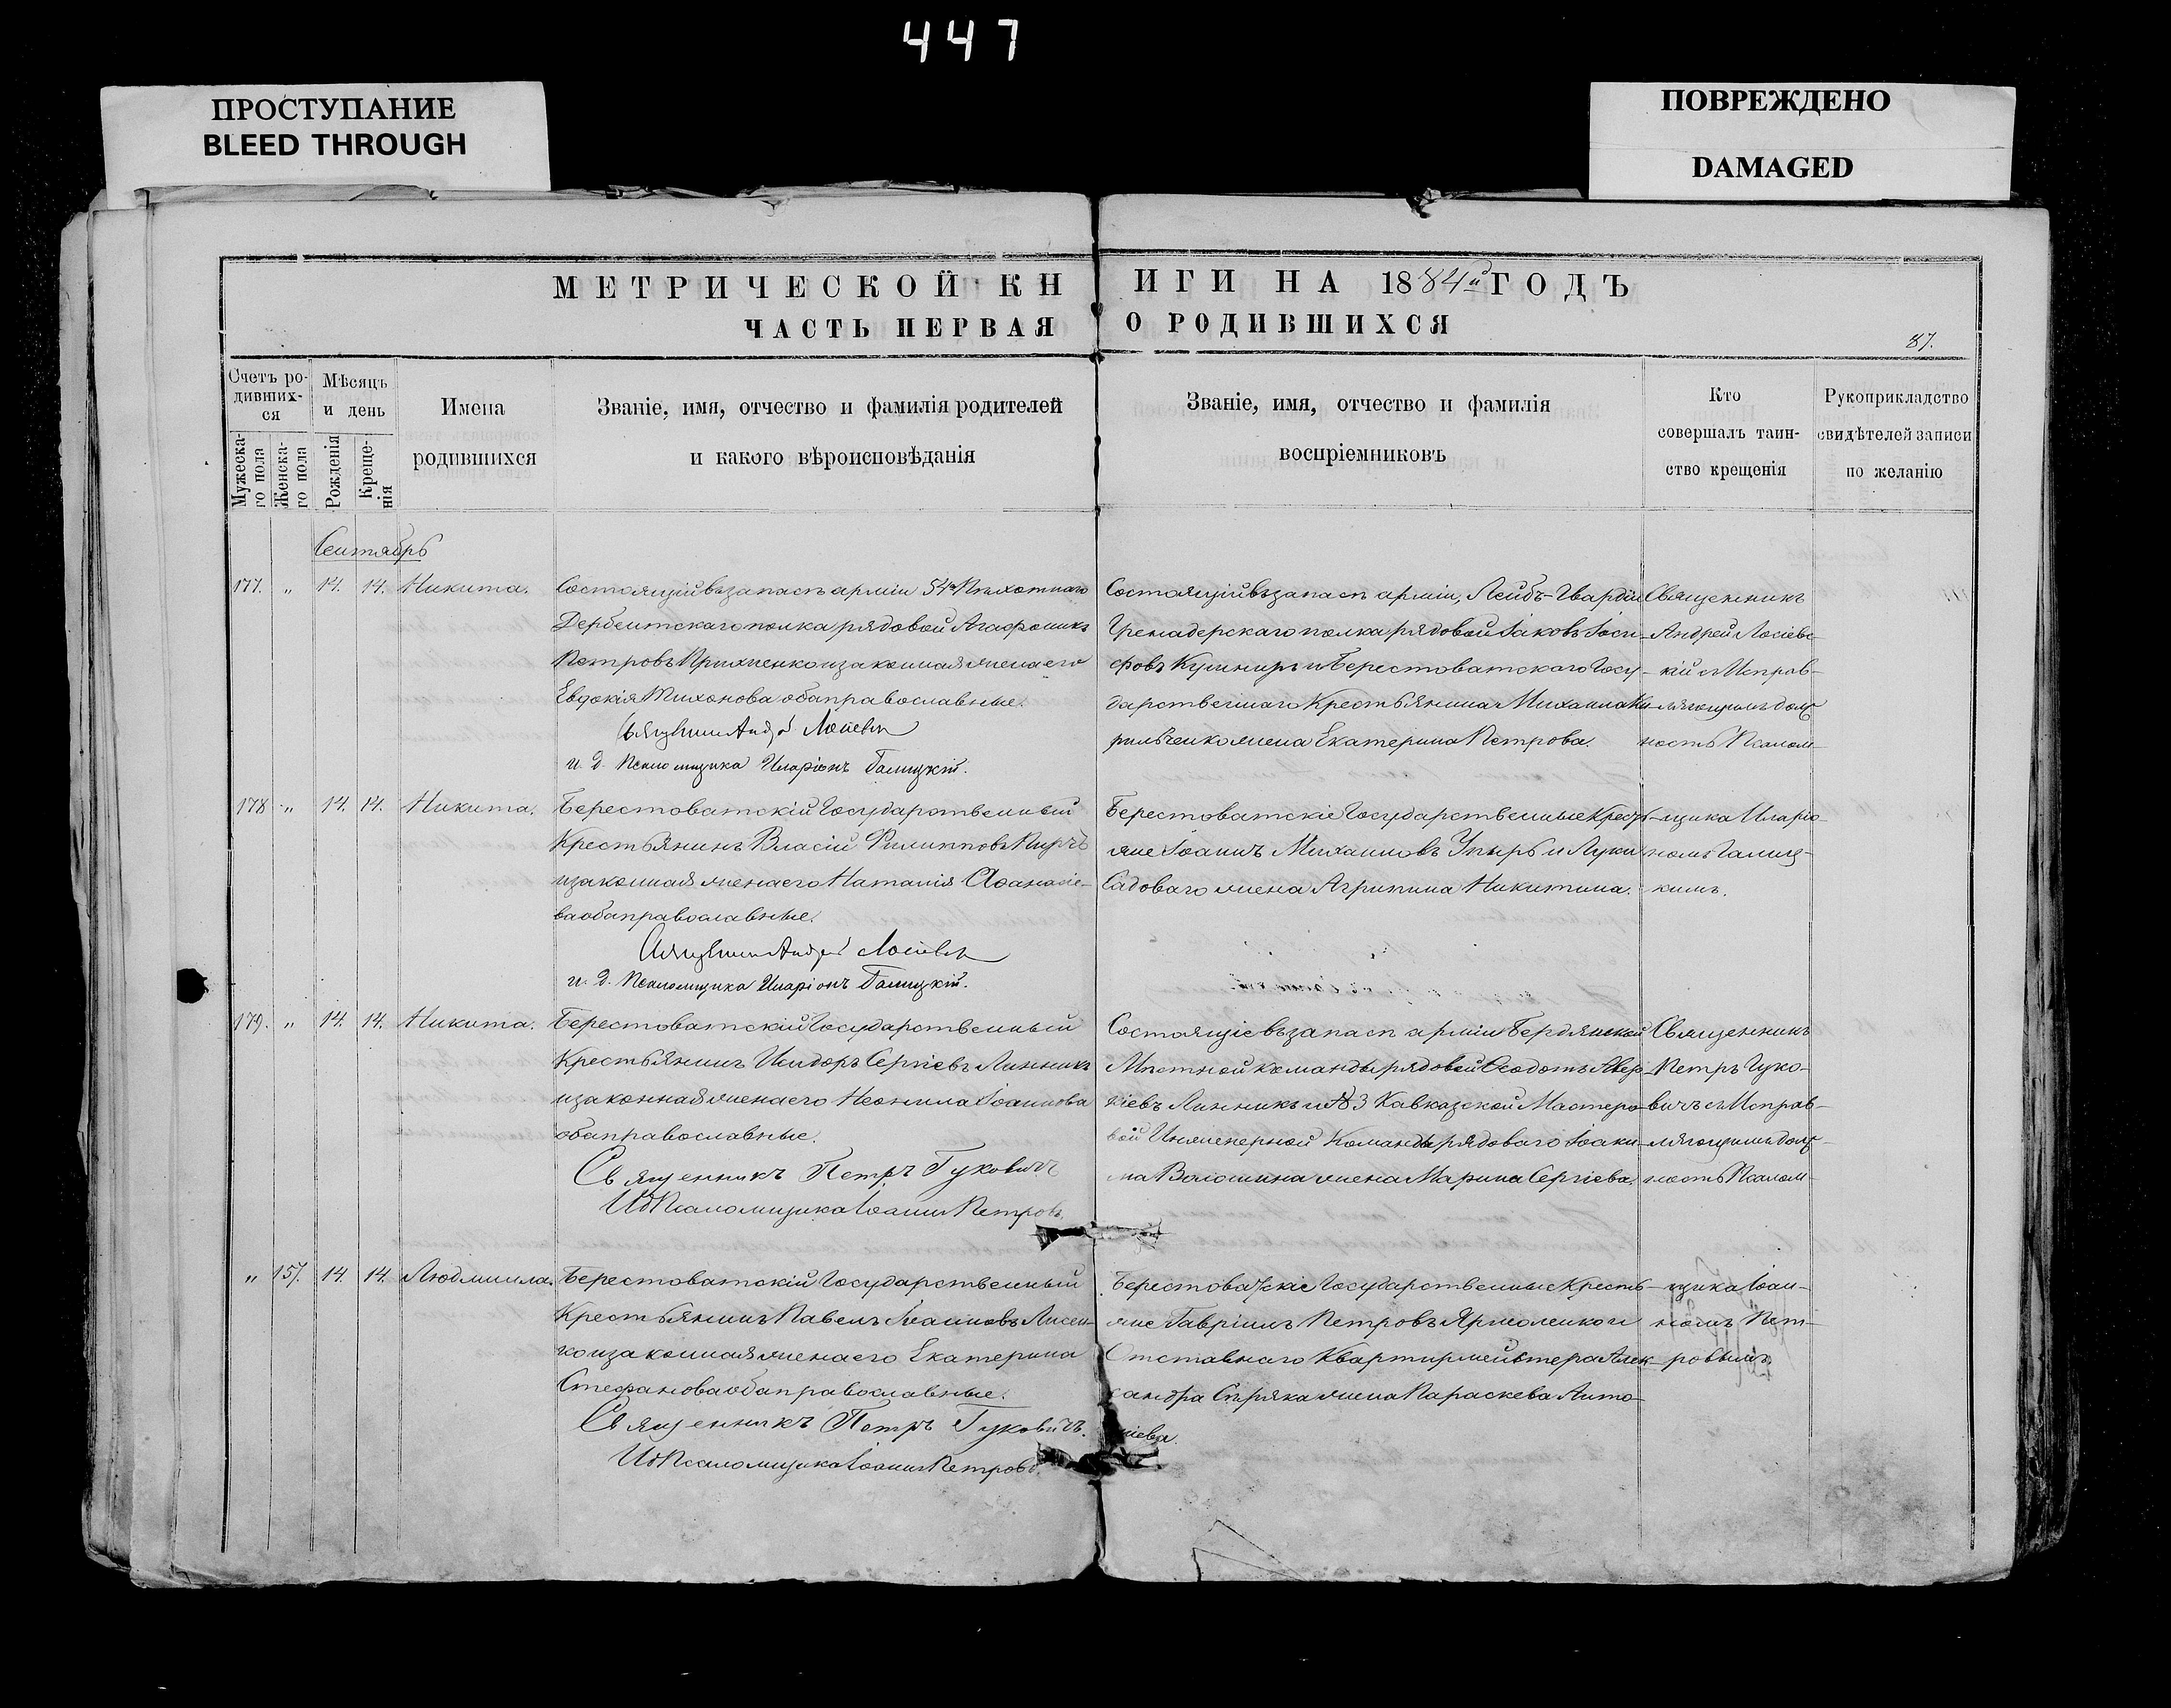 447
ПРОСТУПАНИЕ
BLEED THROUGH
ПОВРЕЖДЕНО
DAMAGED
МЕТРИЧЕСКОЙ КНИГИ НА 1884й ГОДЪ
ЧАСТЬ ПЕРВАЯ О РОДИВШИХСЯ
87.
Счетъ ро-
дивших-
ся
Мужеска-
го пола
Женска-
го пола
Мѣсяцъ
и день
Рожденія
Креще-
нія
Имена
родившихся
Званіе, имя, отчество и фамилія родителей
и какого вѣроисповѣданія
Званіе, имя, отчество и фамилія
воспріемниковъ
Кто
совершалъ таин-
ство крещенія
Рукоприкладство
свидѣтелей записи
по желанію
Сентябрь
177. " 14. 14. Никита.
Состоящій въ запасѣ арміи 54го Пѣхотнаго
Дербентскаго полка рядовой Агафоникъ
Петровъ Прихненко и законная жена его
Евдокія Тихонова оба православные.
Священникъ Андрей Лосіевск
и. д. Псаломщика Иларіонъ Галицкій.
Состоящій въ запасѣ арміи, Лейбъ-Гвардіи
Гренадерскаго полка рядовой Іаковъ Іоси-
фовъ Кушниръ и Берестоватскаго Госу-
дарственнаго Крестьянина Михаила Ки-
рильченко жена Екатерина Петрова.
Священникъ
Андрей Лосіевс-
кій съ Исправ-
ляющимъ долж
ность Псалом-
178 " 14. 14. Никита.
Берестоватскій Государственный
Крестьянинъ Власій Филипповъ Пирчъ
и законная жена его Наталія Аѳанасіе-
ва оба православные.
Священникъ Андрей Лосіевск
и. д. Псаломщика Иларіонъ Галицкій.
Берестоватскіе Государственные Кресть-
яне Іоаннъ Михаиловъ Упырь и Луки
Садоваго жена Агрипина Никитина.
щика Иларіо-
номъ Галиц-
кимъ.
179. " 14. 14. Никита.
Берестоватскій Государственный
Крестьянинъ Исидоръ Сергіевъ Линникъ
и законная жена его Неонила Іоаннова
оба православные.
Священникъ Петръ Гуковичъ
ИД Псаломщика Іоаннъ Петровъ.
Состоящіе въ запасѣ арміи Бердянской
Мѣстной команды рядовой Ѳеодотъ Авер-
кіевъ Линникъ и № 3 Кавказской Мастеро-
вой Инженерной Команды рядоваго Іоаки-
ма Волошина жена Марина Сергіева.
Священникъ
Петръ Гуко-
вичъ съ Исправ-
ляющимъ долж-
ность Псалом-
" 157. 14. 14. Людмила.
Берестоватскій Государственный
Крестьянинъ Павелъ Іоанновъ Лисен-
ко и законная жена его Екатерина
Стефанова оба православные.
Священникъ Петръ Гуковичъ.
ИД Псаломщика Іоаннъ Петровъ.
Берестоватскіе Государственные Кресть-
яне Гавріилъ Петровъ Ярмоленко и
Отставнаго Квартирмейстера Алек-
сандра Спряка жена Параскева Анто-
ніева.
щика Іоан-
номъ Пет-
ровымъ.